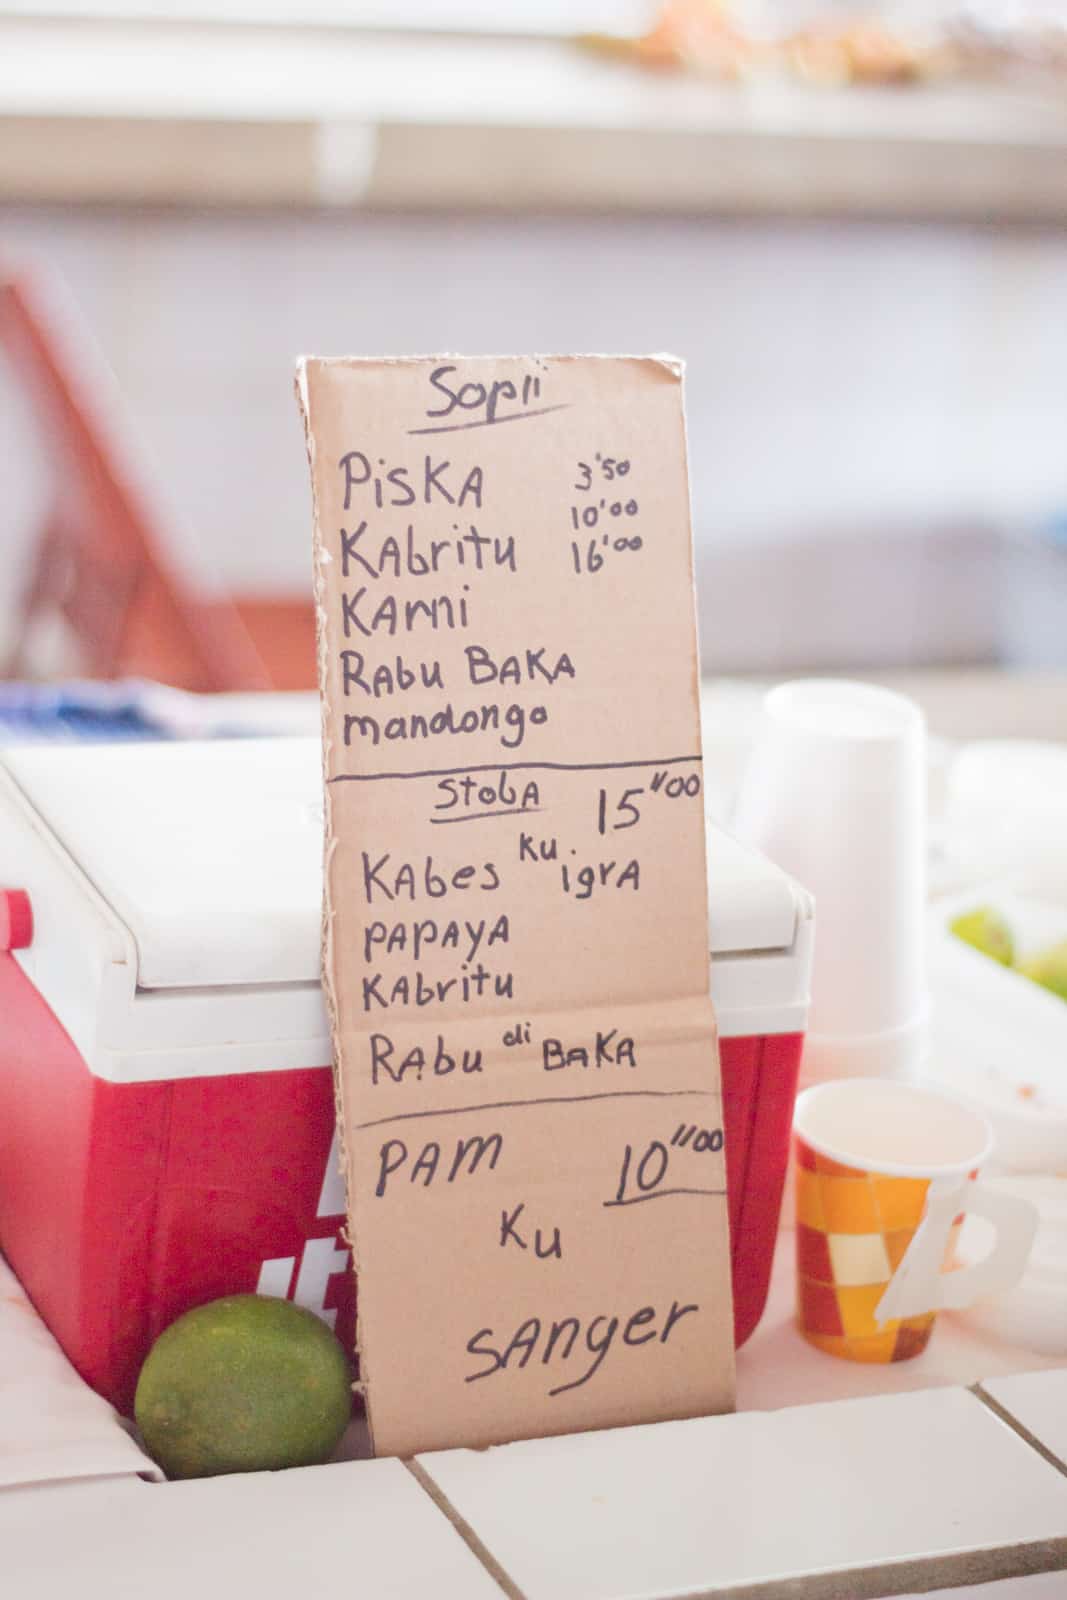 Sopli
PiskA 3'50
KAbritu 10'00
KArni 16'00
RAbu BAKA
mandongo
StobA 15"00
KAbes ku igrA
PAPAYA
KAbritu
RAbu di BAKA
PAM 10"00
Ku
SAnger